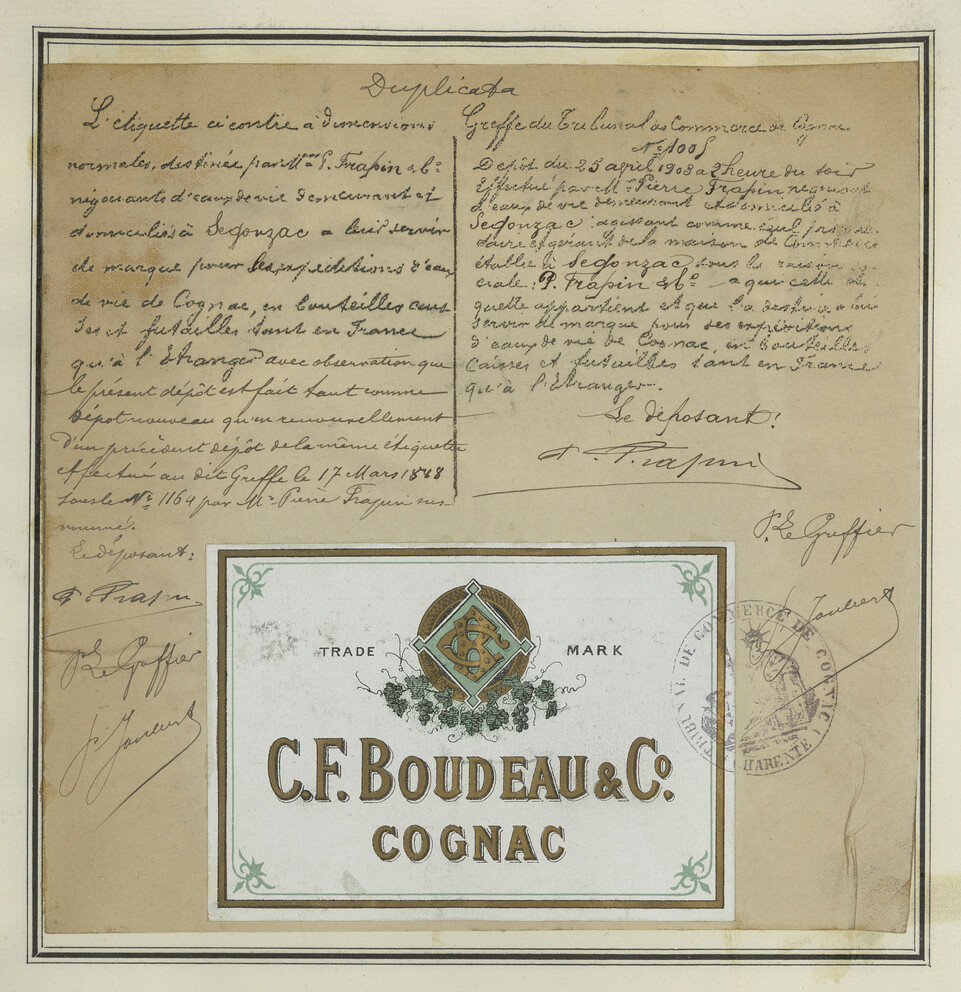 Duplicata
L'étiquette ci contre à dimensions
normales, destinée par Mr P. Frapin & Co
négociants d'eaux de vie demeurant et
domiciliés à Segonzac a leur servir
de marque pour les expéditions d'eaux
de vie de Cognac, en bouteilles cais
ses et futailles tant en France
qu'à l'Etranger avec observation que
le présent dépôt est fait tant comme
dépôt nouveau qu'en renouvellement
d'un précédent dépôt de la même étiquette
effectué au dit Greffe le 17 Mars 1888
sous le No 1164 par Mr Pierre Frapin sus
nommé.
Le déposant:
P. Frapin
P. Le Greffier
Joubert
Greffe du Tribunal de Commerce de Cognac
No 1005
Dépôt du 25 avril 1903 a 2 heure du soir
effectué par Mr Pierre Frapin négociant
d'eaux de vie demeurant et domicilié à
Segonzac agissant comme seul proprié
taire et gérant de la maison de Commerce
établie à Segonzac sous la raison so
ciale: P. Frapin & Co a qui cette éti
quette appartient et que l'a destine a lui
servir de marque pour ses expéditions
d'eaux de vie de Cognac, en bouteilles
Caisses et futailles tant en France
qu'à l'Etranger.
Le déposant:
P. Frapin
P. Le Greffier
Joubert
TRIBUNAL DE COMMERCE DE COGNAC
(CHARENTE)
TRADE MARK
C.F. BOUDEAU & Co.
COGNAC